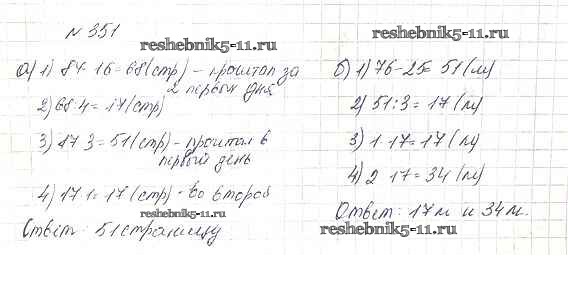 № 351
reshebnik5-11.ru
а) 1) 84-16=68(стр) - прочитал за
2 первых дня
2) 68:4=17(стр)
3) 17·3=51(стр) - прочитал в
первый день
4) 17·1=17(стр) - во второй
reshebnik5-11.ru
Ответ: 51 страницу
reshebnik5-11.ru
б) 1) 76-25=51(м)
2) 51:3=17(м)
3) 1·17=17(м)
4) 2·17=34(м)
Ответ: 17м и 34м.
reshebnik5-11.ru